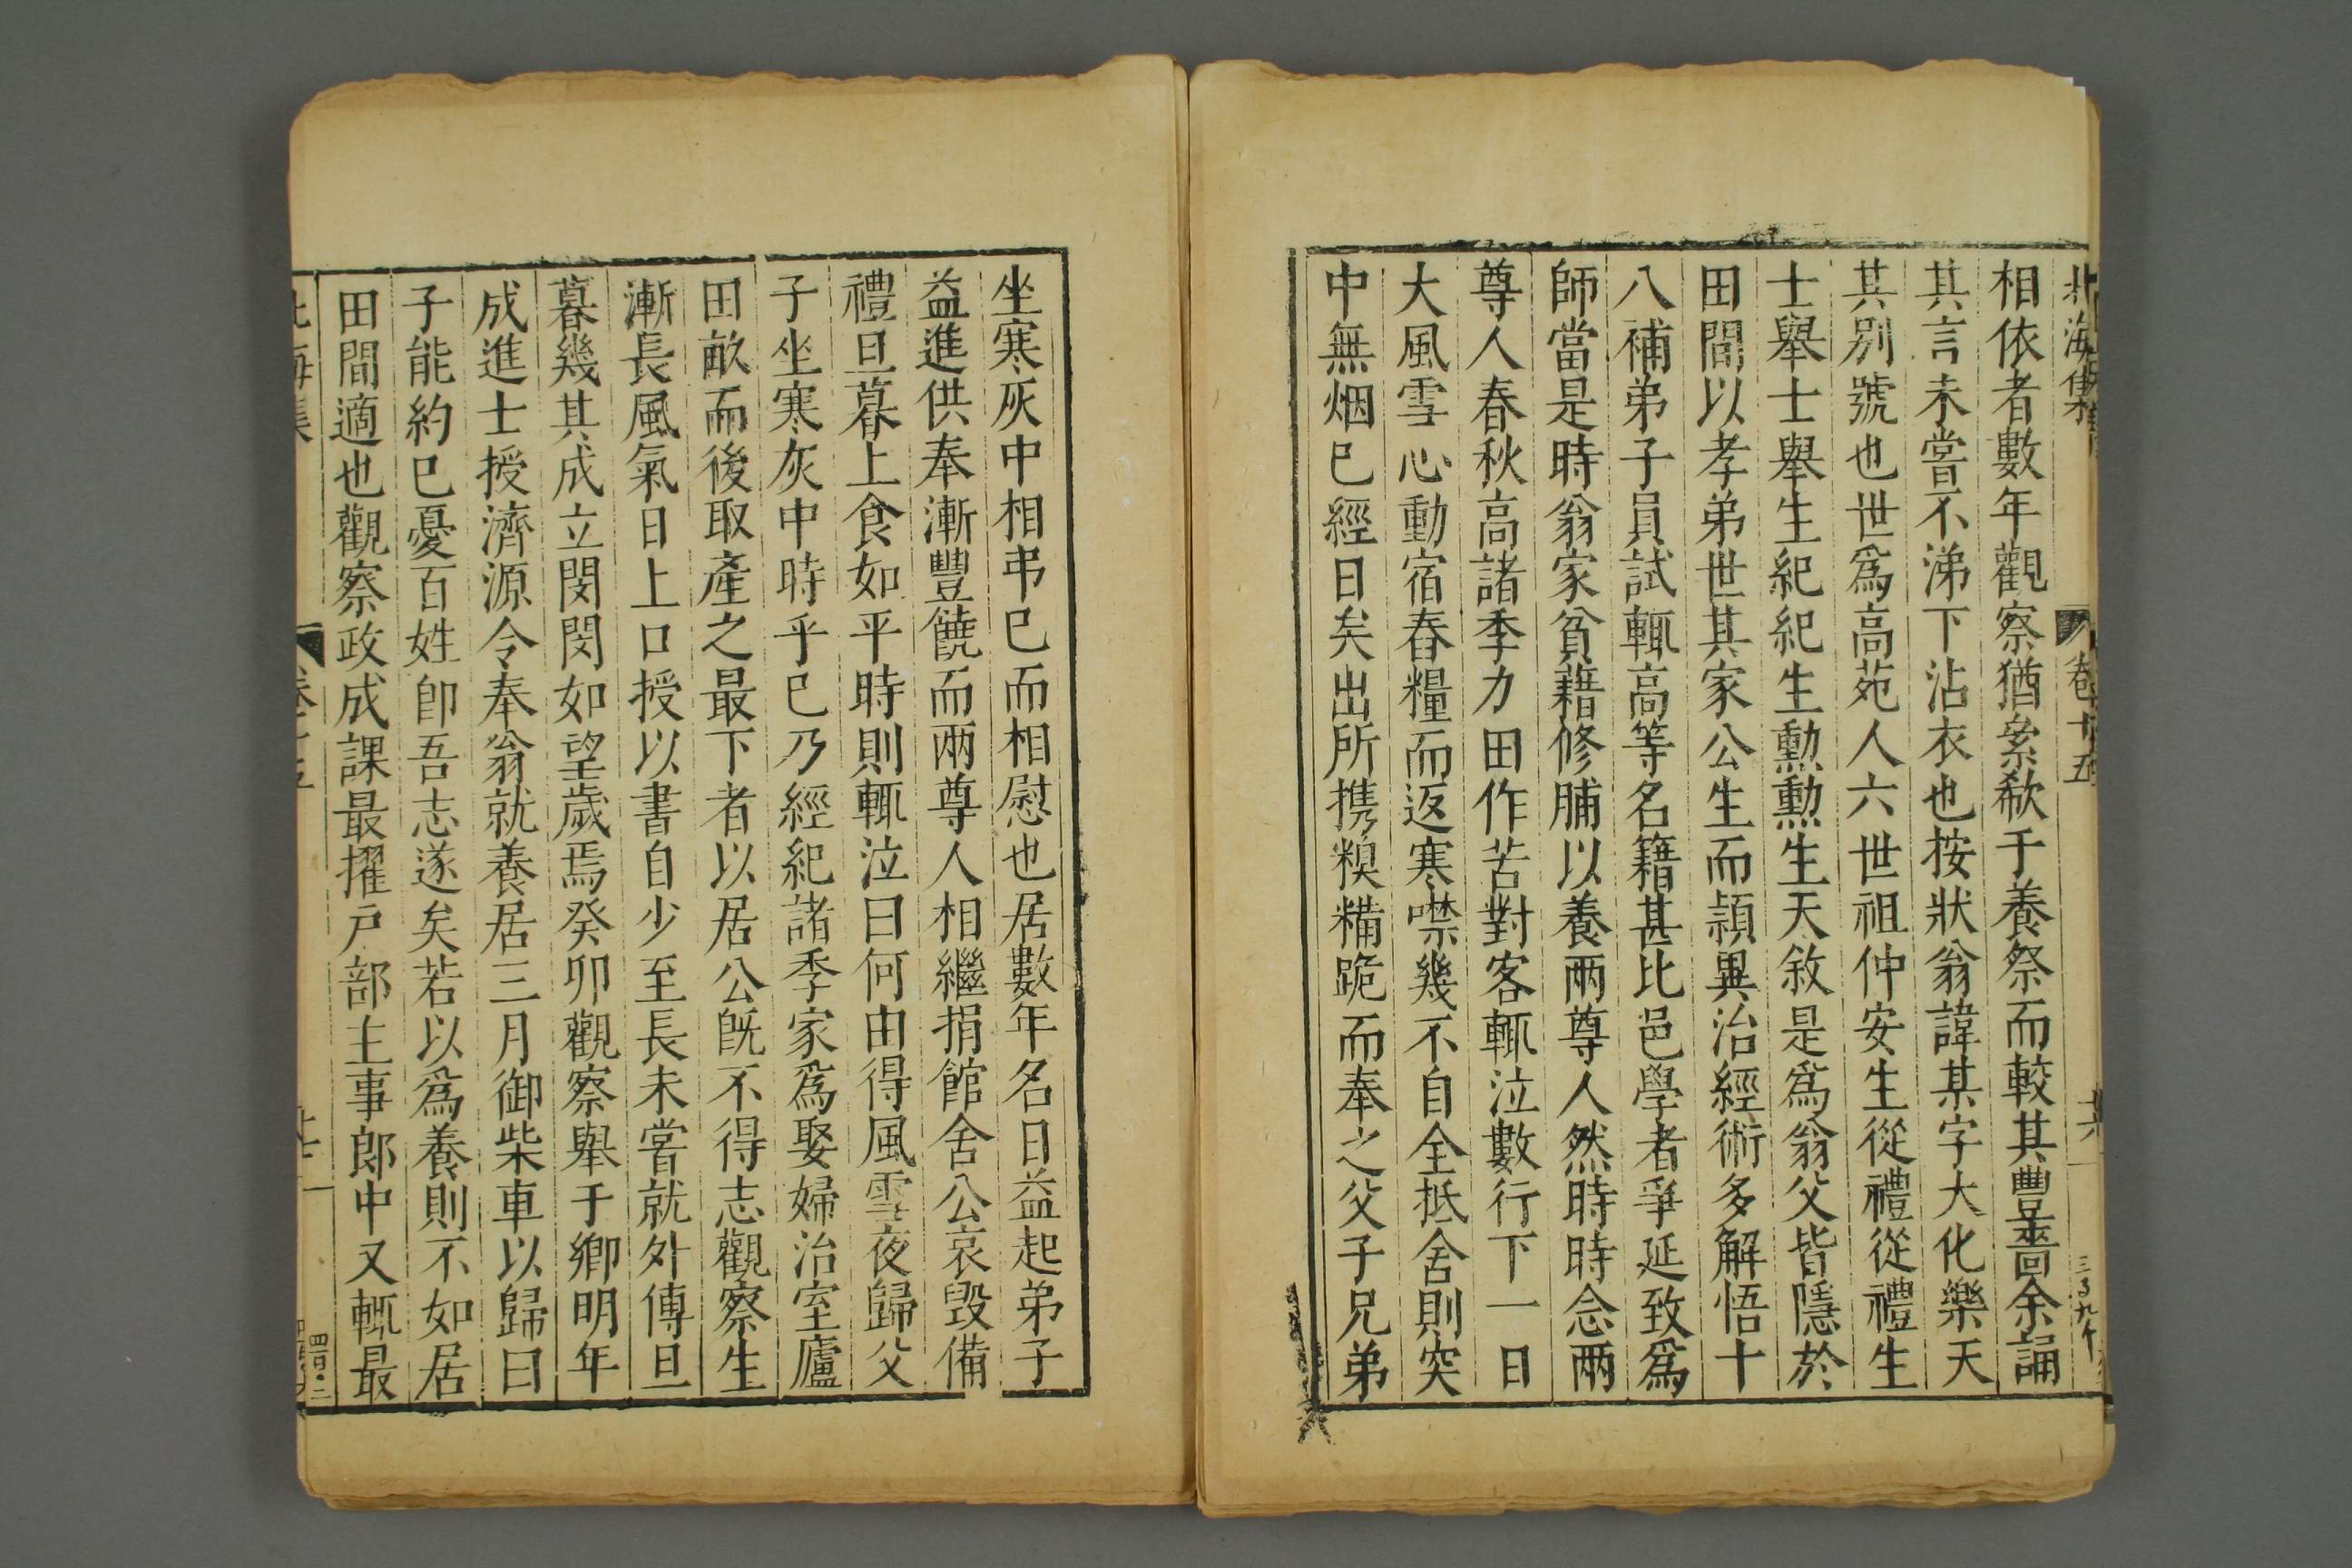 北海集 卷十五 十六
相依者數年觀察猶纍欷于養祭而較其豐嗇余誦
其言未嘗不涕下沾衣也按狀翁諱某字大化樂天
其別號也世爲高苑人六世祖仲安生從禮從禮生
士舉士舉生紀紀生勳勳生天敘是爲翁父皆隱於
田間以孝弟世其家公生而頴異治經術多解悟十
八補弟子員試輒高等名籍甚比邑學者爭延致爲
師當是時翁家貧藉修脯以養兩尊人然時時念兩
尊人春秋高諸季力田作苦對客輒泣數行下一日
大風雪心動宿舂糧而返寒噤幾不自全抵舍則突
中無烟巳經日矣出所携糗糒跪而奉之父子兄弟
坐寒灰中相弔巳而相慰也居數年名日益起弟子
益進供奉漸豐饒而兩尊人相繼捐館舍公哀毀備
禮旦暮上食如平時則輒泣曰何由得風雪夜歸父
子坐寒灰中時乎巳乃經紀諸季家爲娶婦治室廬
田畝而後取產之最下者以居公旣不得志觀察生
漸長風氣日上口授以書自少至長未嘗就外傅旦
暮幾其成立閔閔如望歲焉癸卯觀察舉于鄉明年
成進士授濟源令奉翁就養居三月御柴車以歸曰
子能約巳憂百姓卽吾志遂矣若以爲養則不如居
田間適也觀察政成課最擢戶部主事郎中又輒最